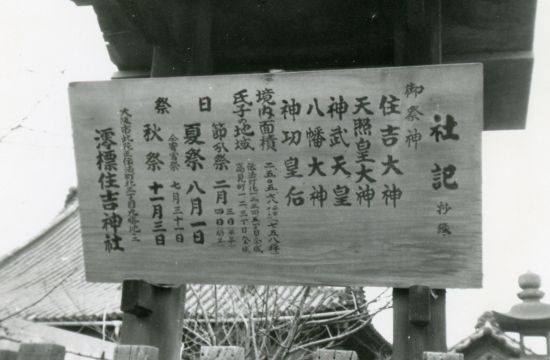 社記 抄録
御祭神
住吉大神
天照皇大神
神武天皇
八幡大神
神功皇后
境内面積 二五〇五・六八
氏子の地域
祭日
節分祭 二月 三日 四日
夏祭 八月一日
七月三十一日
秋祭 十一月三日
大阪市此花区伝法町北
澪標住吉神社